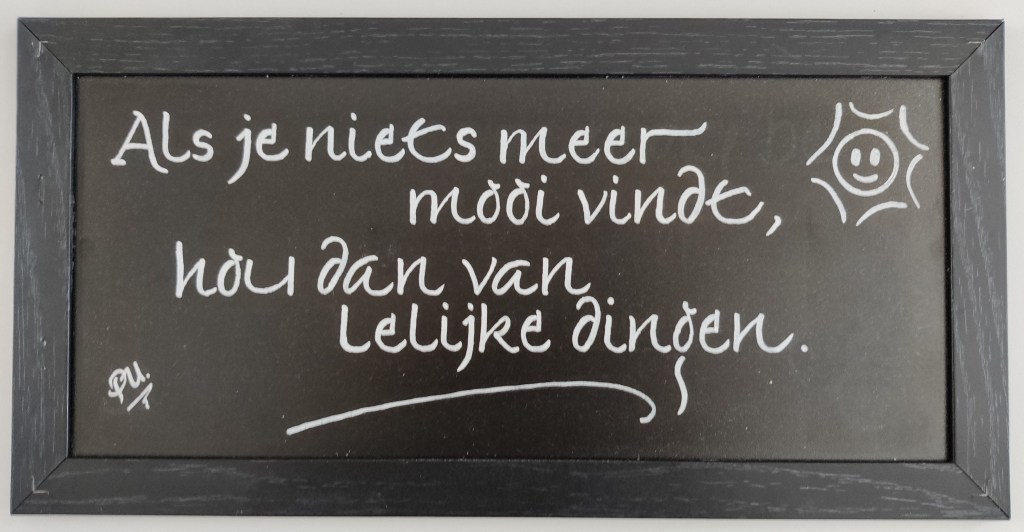 Als je niets meer
mooi vindt,
hou dan van
lelijke dingen.